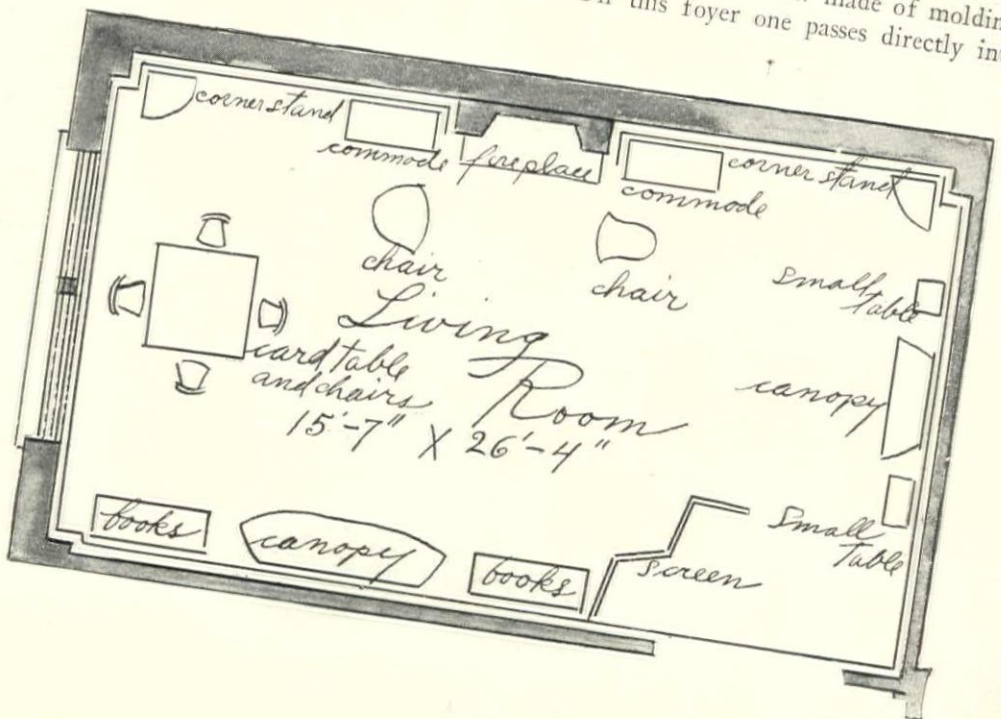 made of moldin
this foyer one passes directly int
corner stand
commode
fireplace
commode
corner stand
chair
chair
small
table
Living
Room
card table
and chairs
15'-7" X 26'-4"
canopy
books
canopy
books
screen
Small
Table